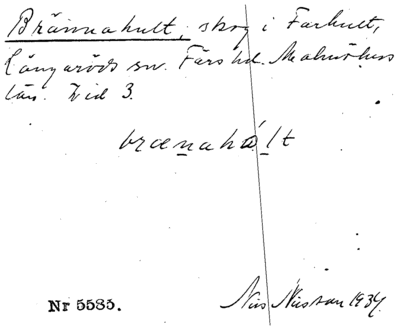 Brännahult, skog i Farhult,
Långaröds sn. Färs hd. Malmöhus
län. Bid 3.
brænahålt
Nr 5585. Nils Nilsson 1934